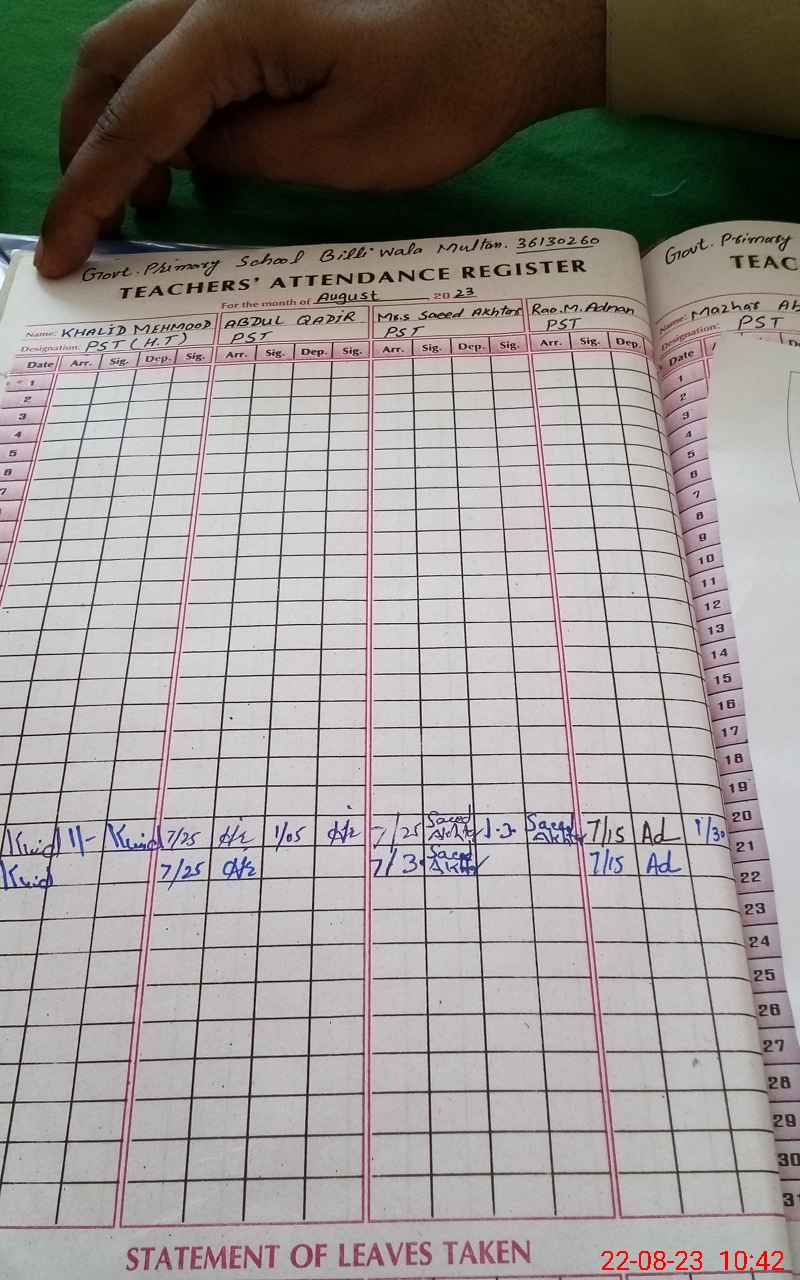 Govt. Primary School Billi Wala Multan. 36130260
TEACHERS' ATTENDANCE REGISTER
For the month of August 2023
Name: KHALID MEHMOOD ABDUL QADIR Mrs Saeed Akhtar Rao.M.Adnan
Designation: PST (H.T) PST PST PST
Date Arr. Sig. Dep. Sig. Arr. Sig. Dep. Sig. Arr. Sig. Dep. Sig. Arr. Sig. Dep.
1
2
3
4
5
6
7
1/- 7/25 1/05 7/25 Saeed Akhtar Saeed Akhtar 7/15 Ad 1/30
7/25 7/3 Saeed Akhtar 7/15 Ad
STATEMENT OF LEAVES TAKEN
Govt. Primary
TEAC
Name: Mazhar Ab
Designation: PST
Date
1
2
3
4
5
6
7
8
9
10
11
12
13
14
15
16
17
18
19
20
21
22
23
24
25
26
27
28
29
30
31
22-08-23 10:42